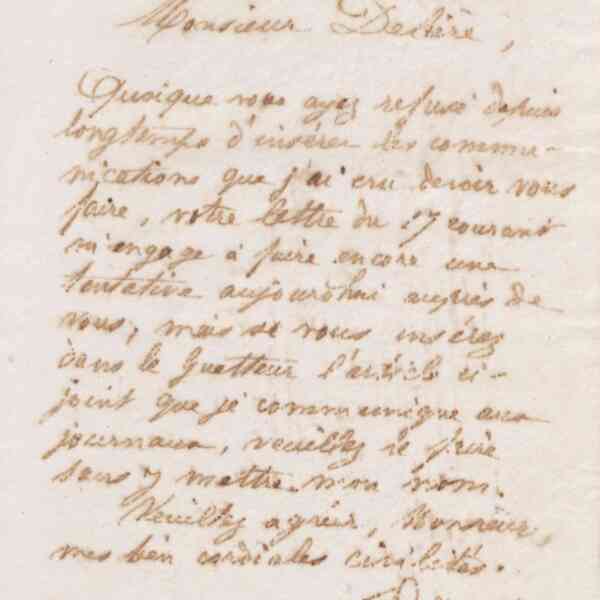 Monsieur Desléré,
Quoique vous ayez refusé depuis
longtemps d'insérer les commu-
nications que j'ai cru devoir vous
faire, votre lettre du 17 courant
m'engage à faire encore une
tentative aujourd'hui auprès de
vous; mais si vous insérez
dans le Guetteur l'article ci-
joint que je communique aux
journaux, veuillez le faire
sans y mettre mon nom.
Veuillez agréer, Monsieur,
mes bien cordiales civilités.